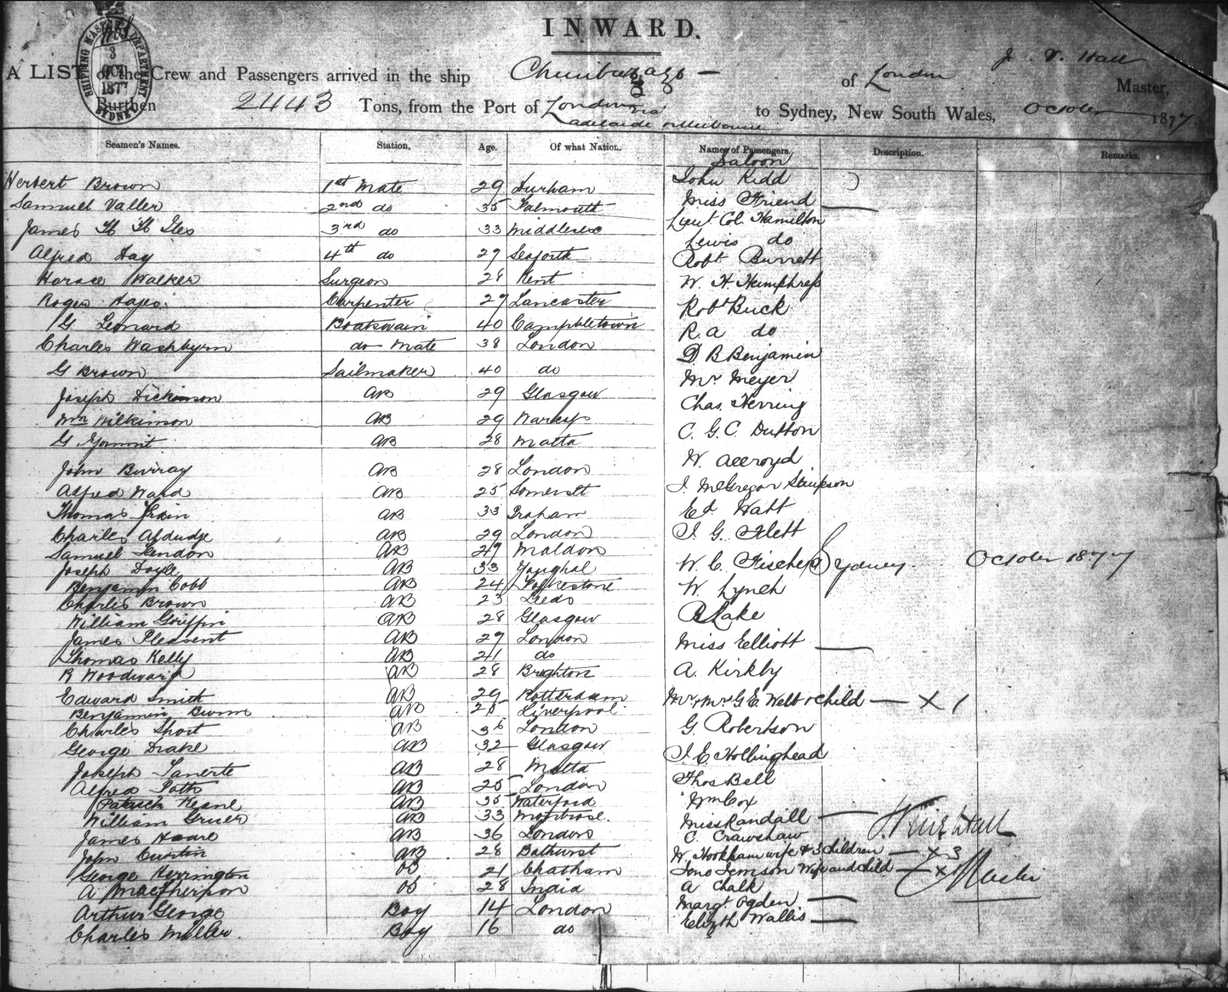 INWARD.
SHIPPING MASTER'S DEPARTMENT
3
OCT
1877
SYDNEY
A LIST of the Crew and Passengers arrived in the ship Chimborazo of London J. V. Hall Master,
Burthen 2443 Tons, from the Port of London via to Sydney, New South Wales, October 1877
Adelaide Melbourne
Seamen's Names. Station. Age. Of what Nation. Names of Passengers. Description. Remarks.
Saloon
Herbert Brown 1st Mate 29 Durham John Kidd
Samuel Valler 2nd do 35 Falmouth Miss Friend
James 3rd do 33 Middlesex Lieut Col Hamilton
Lewis do
Alfred Hay 4th do 27 Seaforth Robt Burrett
Horace Walker Surgeon 28 Kent W. H. Humphreys
Roger Carpenter 27 Lancaster Robt Buck
G Leonard Boatswain 40 Campbletown R. A do
Charles Washbyrn do Mate 38 London D B Benjamin
G Brown Sailmaker 40 do Mr Meyer
Joseph Dickinson AB 29 Glasgow Chas. Herring
Wm Wilkinson AB 29 C. G. C. Dutton
G AB 28 Malta
John AB 28 London W. Accroyd
Alfred Ward AB 25 Somersett J. McGregor Simpson
Thomas AB 33 Ed Hatt
Charles Aldudge AB 29 London J. G. Flett
Samuel AB 29 Maldon
Joseph Doyle AB 33 Youghal W. C. Fischer Sydney October 1877
Benjamin Cobb AB 24 Folkestone W. Lynch
Charles Brown AB 23 Leeds
William Griffin AB 28 Glasgow Lake
James Pleasent AB 29 London Miss Elliott
Thomas Kelly AB 21 do
R Woodward AB 28 Brighton A. Kirkby
Edward Smith AB 29 Rotterdam Mr & Mrs G. E. Webb & Child — X 1
Benjamin AB 25 Liverpool
Charles Short AB 36 London G. Robertson
George Drake AB 32 Glasgow J. E Hollinghead
Joseph AB 28 Malta
Alfred Potts AB 25 London Thos Bell
Patrick AB 35 Waterford Wm Cox
William AB 33 Montrose. Miss Randall
James AB 36 London C. Crawshaw Hall
John Curtin AB 28 Bathurst W. Hookham wife & 3 Children — X 3
George Herrington OS 21 Chatham Jemson Wife and Child — X Master
A Macpherson OS 28 India A Chalk
Arthur George Boy 14 London Margt. Ogden
Charles Miller. Boy 16 do Elizth Wallis